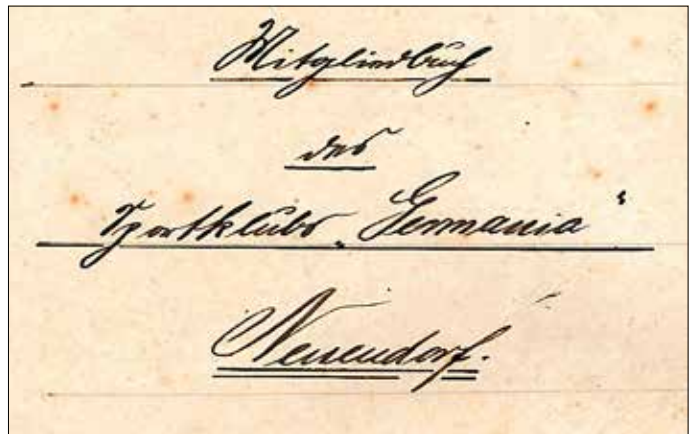 Mitgliedbuch
des
Sportklubs „Germania“
Neuendorf.